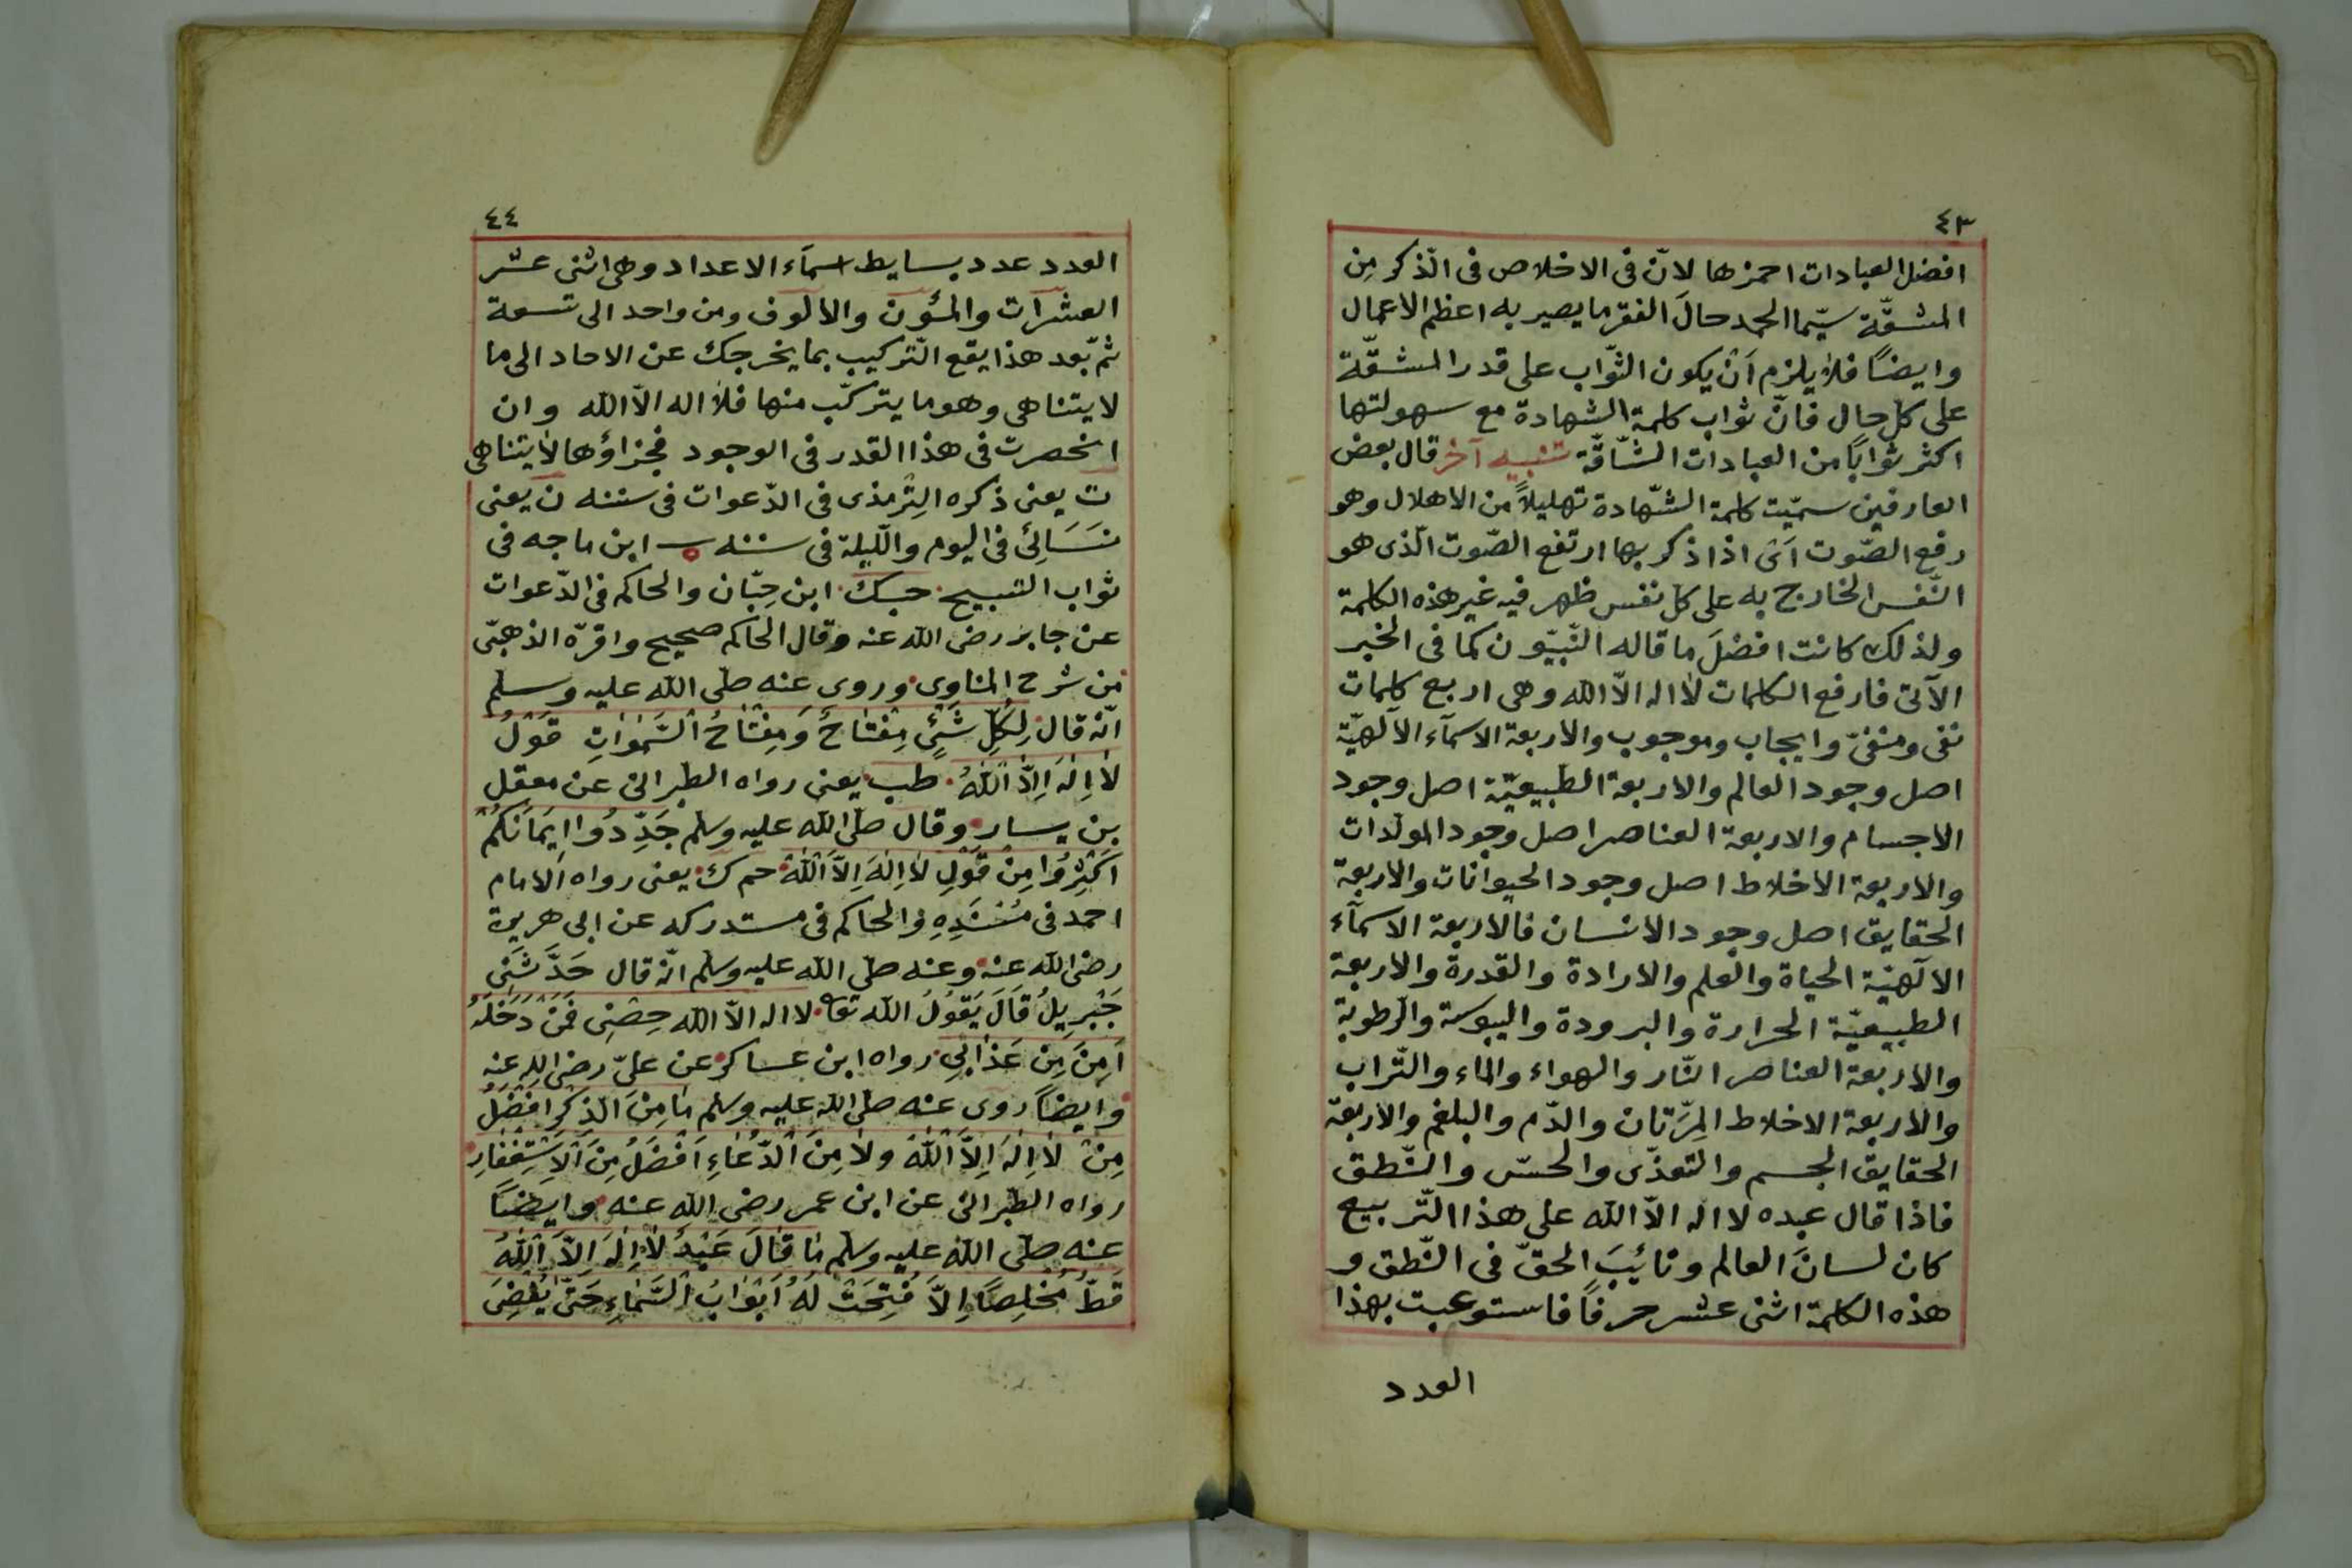 ٤٣
افضل العبادات احمزها لانّ فى الاخلاص فى الذّكر مِن
المشقّة سيّما الحمد حالَ الفقر ما يصير به اعظم الاعمال
وايضًا فلا يلزم اَنْ يكون الثّواب على قدر المشقّة
على كل حال فانّ ثواب كلمة الشهادة مع سهولتها
اكثر ثوابًا من العبادات الشّاقّة تنبيه آخر قال بعض
العارفين سمّيت كلمة الشّهادة تهليلاً من الاهلال وهو
رفع الصّوت اَىْ اذا ذكر بها ارتفع الصّوت الّذى هو
النّفس الخارج به على كل نفس ظهر فيه غير هذه الكلمة
ولذلك كانت افضلَ ما قاله النّبيّون كما فى الخبر
الآتى فارفع الكلمات لا اله الاّ الله وهى اربع كلمات
نفى ومنفىّ وايجاب وموجوب والاربعة الاسمآء الالٓهيّة
اصل وجود العالم والاربعة الطّبيعيّة اصل وجود
الاجسام والاربعة العناصر اصل وجود المولّدات
والاربعة الاخلاط اصل وجود الحيوانات والاربعة
الحقايق اصل وجود الانسان فالاربعة الاسمآء
الالٓهيّة الحياة والعلم والارادة والقدرة والاربعة
الطبيعيّة الحرارة والبرودة واليبوسة والرّطوبة
والاربعة العناصر النّار والهواء والماء والتّراب
والاربعة الاخلاط المِرّتان والدّم والبلغم والاربعة
الحقايق الجسم والتغذّى والحسّ والنّطق
فاذا قال عبده لا اله الاّ الله على هذا التّربيع
كان لسانَ العالم ونائبَ الحقّ فى النّطق و
هذه الكلمة اثنى عشر حرفًا فاستوعبت بهذا
العدد
٤٤
العدد عدد بسايط اسمآء الاعداد وهى اثنى عشر
العشرات والمئون والالوف ومن واحد الى تسعة
ثمّ بعد هذا يقع التّركيب بما يخرجك عن الاحاد الى ما
لا يتناهى وهو ما يتركّب منها فلا اله الاّ الله وان
انحصرت فى هذا القدر فى الوجود فجزاؤها لا يتناهى
ت يعنى ذكره التِّرمذى فى الدّعوات فى سننه ن يعنى
نسَائى فى اليوم واللّيلة فى سننه ه ابن ماجه فى
ثواب التسبيح حبك ابن حِبّان والحاكم فى الدّعوات
عن جابر رضى الله عنه وقال الحاكم صحيح واقرّه الذهبّى
من شرح المناوى وروى عنه صلّى الله عليه وسلم
انّه قال لِكُلِّ شَئٍْ مِفْتَاحٌ وَمِفْتَاحُ السَّمٰوَاتِ قَوْلُ
لاَ اِلٰهَ اِلاَّ اللّٰهُ طب يعنى رواه الطبرانى عن معقل
بن يسار وقال صلّى الله عليه وسلم جَدِّدُوا اِيمَانَكُمْ
اَكْثِرُوا مِنْ قَوْلِ لاَ اِلٰهَ اِلاَّ اللّٰهُ حم ك يعنى رواه الامام
احمد فى مُسْنَدِهِ والحاكم فى مستدركه عن ابى هريرة
رضى الله عنه وعنه صلّى الله عليه وسلم انّه قال حَدَّثَنِى
جَبْرِيلُ قَالَ يَقُولُ الله تعا لا اله الاّ الله حِصْنِى فَمَنْ دَخَلَهُ
اَمِنَ مِن عَذَابِى رواه ابن عساكر عن علىّ رضى الله عنه
وايضًا روى عنه صلّى الله عليه وسلم مَا مِنَ الذِّكْرِ افْضَلُ
مِنْ لاَ اِلٰهَ اِلاَّ اللّٰهُ وَلاَ مِنَ الدُّعَاءِ اَفْضَلُ مِنَ الاِسْتِغْفَارِ
رواه الطّبرانى عن ابن عمر رضى الله عنه وايضًا
عنه صلّى الله عليه وسلم مَا قَالَ عَبْدٌ لاَ اِلٰهَ اِلاَّ اللّٰهُ
قَطُّ مُخْلِصًا اِلاَّ فُتِحَتْ لَهُ اَبْوَابُ السَّمَاءِ حَتّٰى يُفْضِىَ